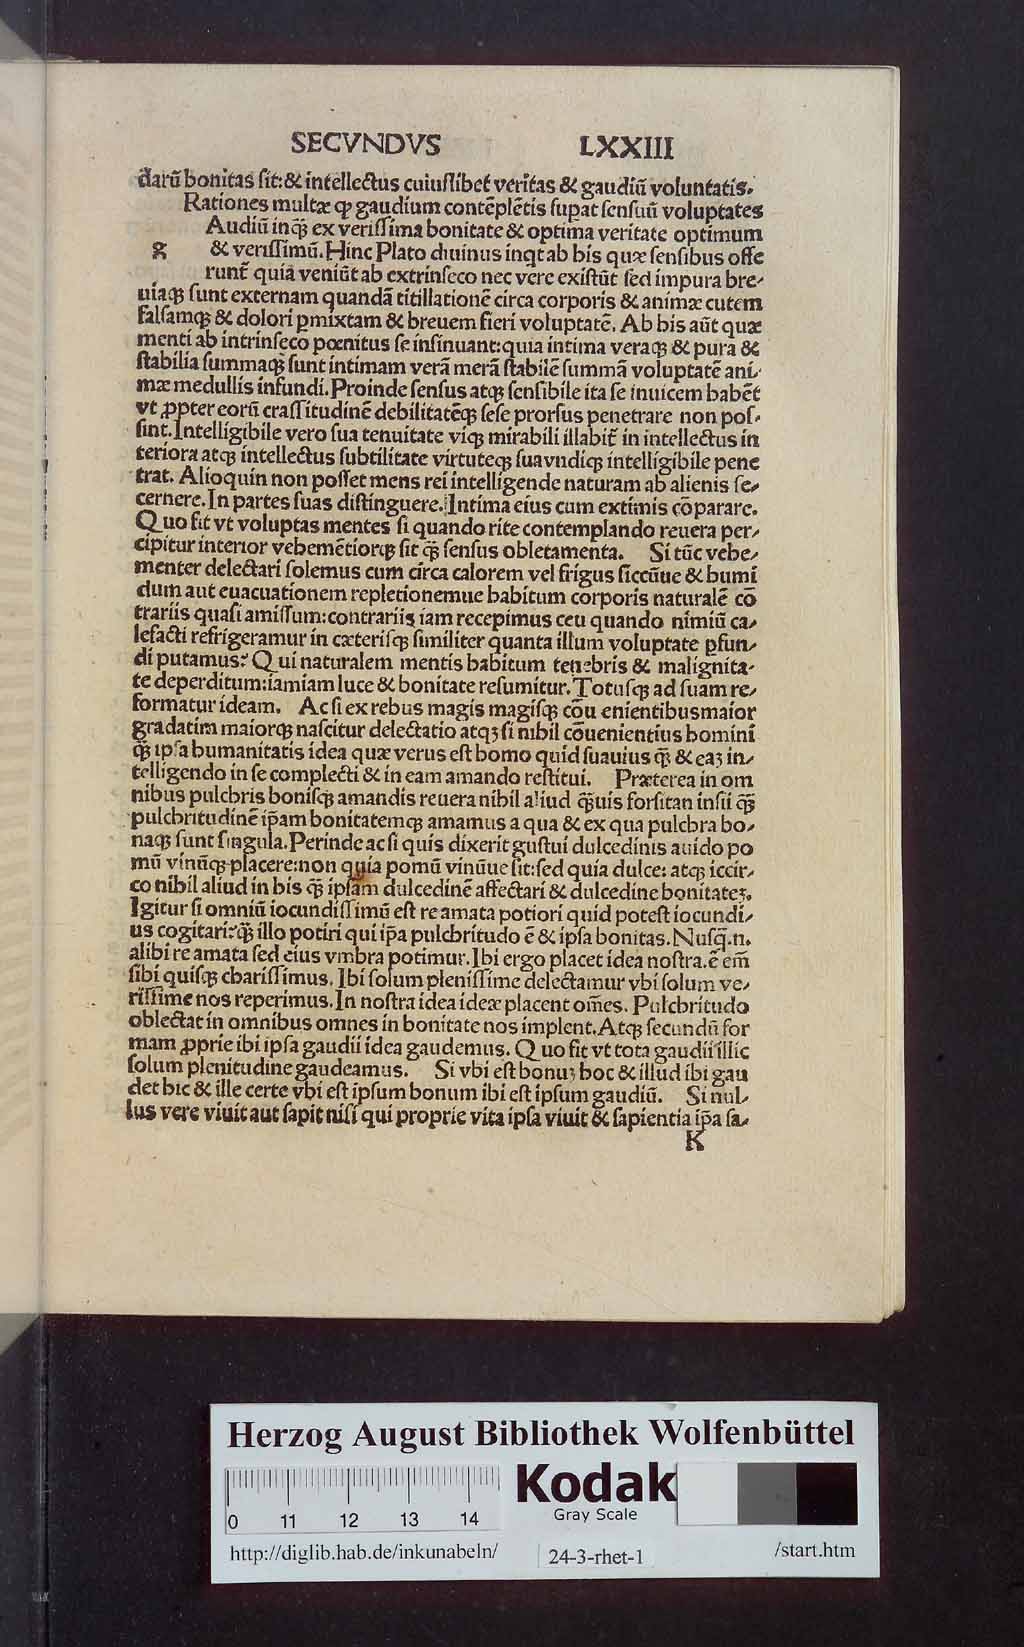 SECVNDVS LXXIII
darū bonitas sit:& intellectus cuiuslibet veritas & gaudiū voluntatis.
Rationes multæ ꝙ gaudium contēplētis supat sensuū voluptates
Audiū inq̄ ex verissima bonitate & optima veritate optimum
g & verissimū. Hinc Plato diuinus inqt ab his quæ sensibus offe
runt̄ quia veniūt ab extrinseco nec vere existūt sed impura bre-
uiaqꝫ sunt externam quandā titillationē circa corporis & animæ cutem
falsamqꝫ & dolori ꝑmixtam & breuem fieri voluptatē. Ab his aūt quæ
menti ab intrinseco pœnitus se insinuant:quia intima veraqꝫ & pura &
stabilia summaqꝫ sunt intimam verā merā stabilē summā voluptatē ani-
mæ medullis infundi. Proinde sensus atqꝫ sensibile ita se inuicem habēt
vt ꝓpter eorū crassitudinē debilitatēqꝫ sese prorsus penetrare non pos-
sint. Intelligibile vero sua tenuitate viqꝫ mirabili illabit̄ in intellectus in
teriora atqꝫ intellectus subtilitate virtuteqꝫ sua vndiqꝫ intelligibile pene
trat. Alioquin non posset mens rei intelligende naturam ab alienis se-
cernere. In partes suas distinguere. Intima eius cum extimis cōparare.
Quo fit vt voluptas mentes si quando rite contemplando reuera per-
cipitur interior vehemētiorqꝫ sit q̄ sensus obletamenta. Si tūc vehe-
menter delectari solemus cum circa calorem vel frigus siccūue & humi
dum aut euacuationem repletionemue habitum corporis naturalē cō
trariis quasi amissum:contrariis iam recepimus ceu quando nimiū ca-
lefacti refrigeramur in cæterisqꝫ similiter quanta illum voluptate ꝑfun-
di putamus? Qui naturalem mentis habitum tenebris & malignita-
te deperditum:iamiam luce & bonitate resumitur. Totusqꝫ ad suam re-
formatur ideam. Ac si ex rebus magis magisqꝫ cōu enientibusmaior
gradatim maiorqꝫ nascitur delectatio atqꝫ si nihil cōuenientius homini
q̄ ipsa humanitatis idea quæ verus est homo quid suauius q̄ & eaꝫ in-
telligendo in se complecti & in eam amando restitui. Præterea in om
nibus pulchris bonisqꝫ amandis reuera nihil aliud q̄uis forsitan inscii q̄
pulchritudinē ip̄am bonitatemqꝫ amamus a qua & ex qua pulchra bo-
naqꝫ sunt singula. Perinde ac si quis dixerit gustui dulcedinis auido po
mū vinūqꝫ placere:non quia pomū vinūue sit:sed quia dulce: atqꝫ iccir-
co nihil aliud in his q̄ ipsam dulcedinē affectari & dulcedine bonitateꝫ.
Igitur si omniū iocundissimū est re amata potiori quid potest iocundi-
us cogitari?q̄ illo potiri qui ip̄a pulchritudo ē & ipsa bonitas. Nusq̄.n.
alibi re amata sed eius vmbra potimur. Ibi ergo placet idea nostra.ē em̄
sibi quisqꝫ charissimus. Ibi solum plenissime delectamur vbi solum ve-
rissime nos reperimus. In nostra idea ideæ placent om̄es. Pulchritudo
oblectat in omnibus omnes in bonitate nos implent. Atqꝫ secundū for
mam ꝓprie ibi ipsa gaudii idea gaudemus. Quo fit vt tota gaudii illic
solum plenitudine gaudeamus. Si vbi est bonuꝫ hoc & illud ibi gau
det hic & ille certe vbi est ipsum bonum ibi est ipsum gaudiū. Si nul-
lus vere viuit aut sapit nisi qui proprie vita ipsa viuit & sapientia ip̄a sa-
K
Herzog August Bibliothek Wolfenbüttel
0 11 12 13 14
Kodak
Gray Scale
http://diglib.hab.de/inkunabeln/ 24-3-rhet-1 /start.htm